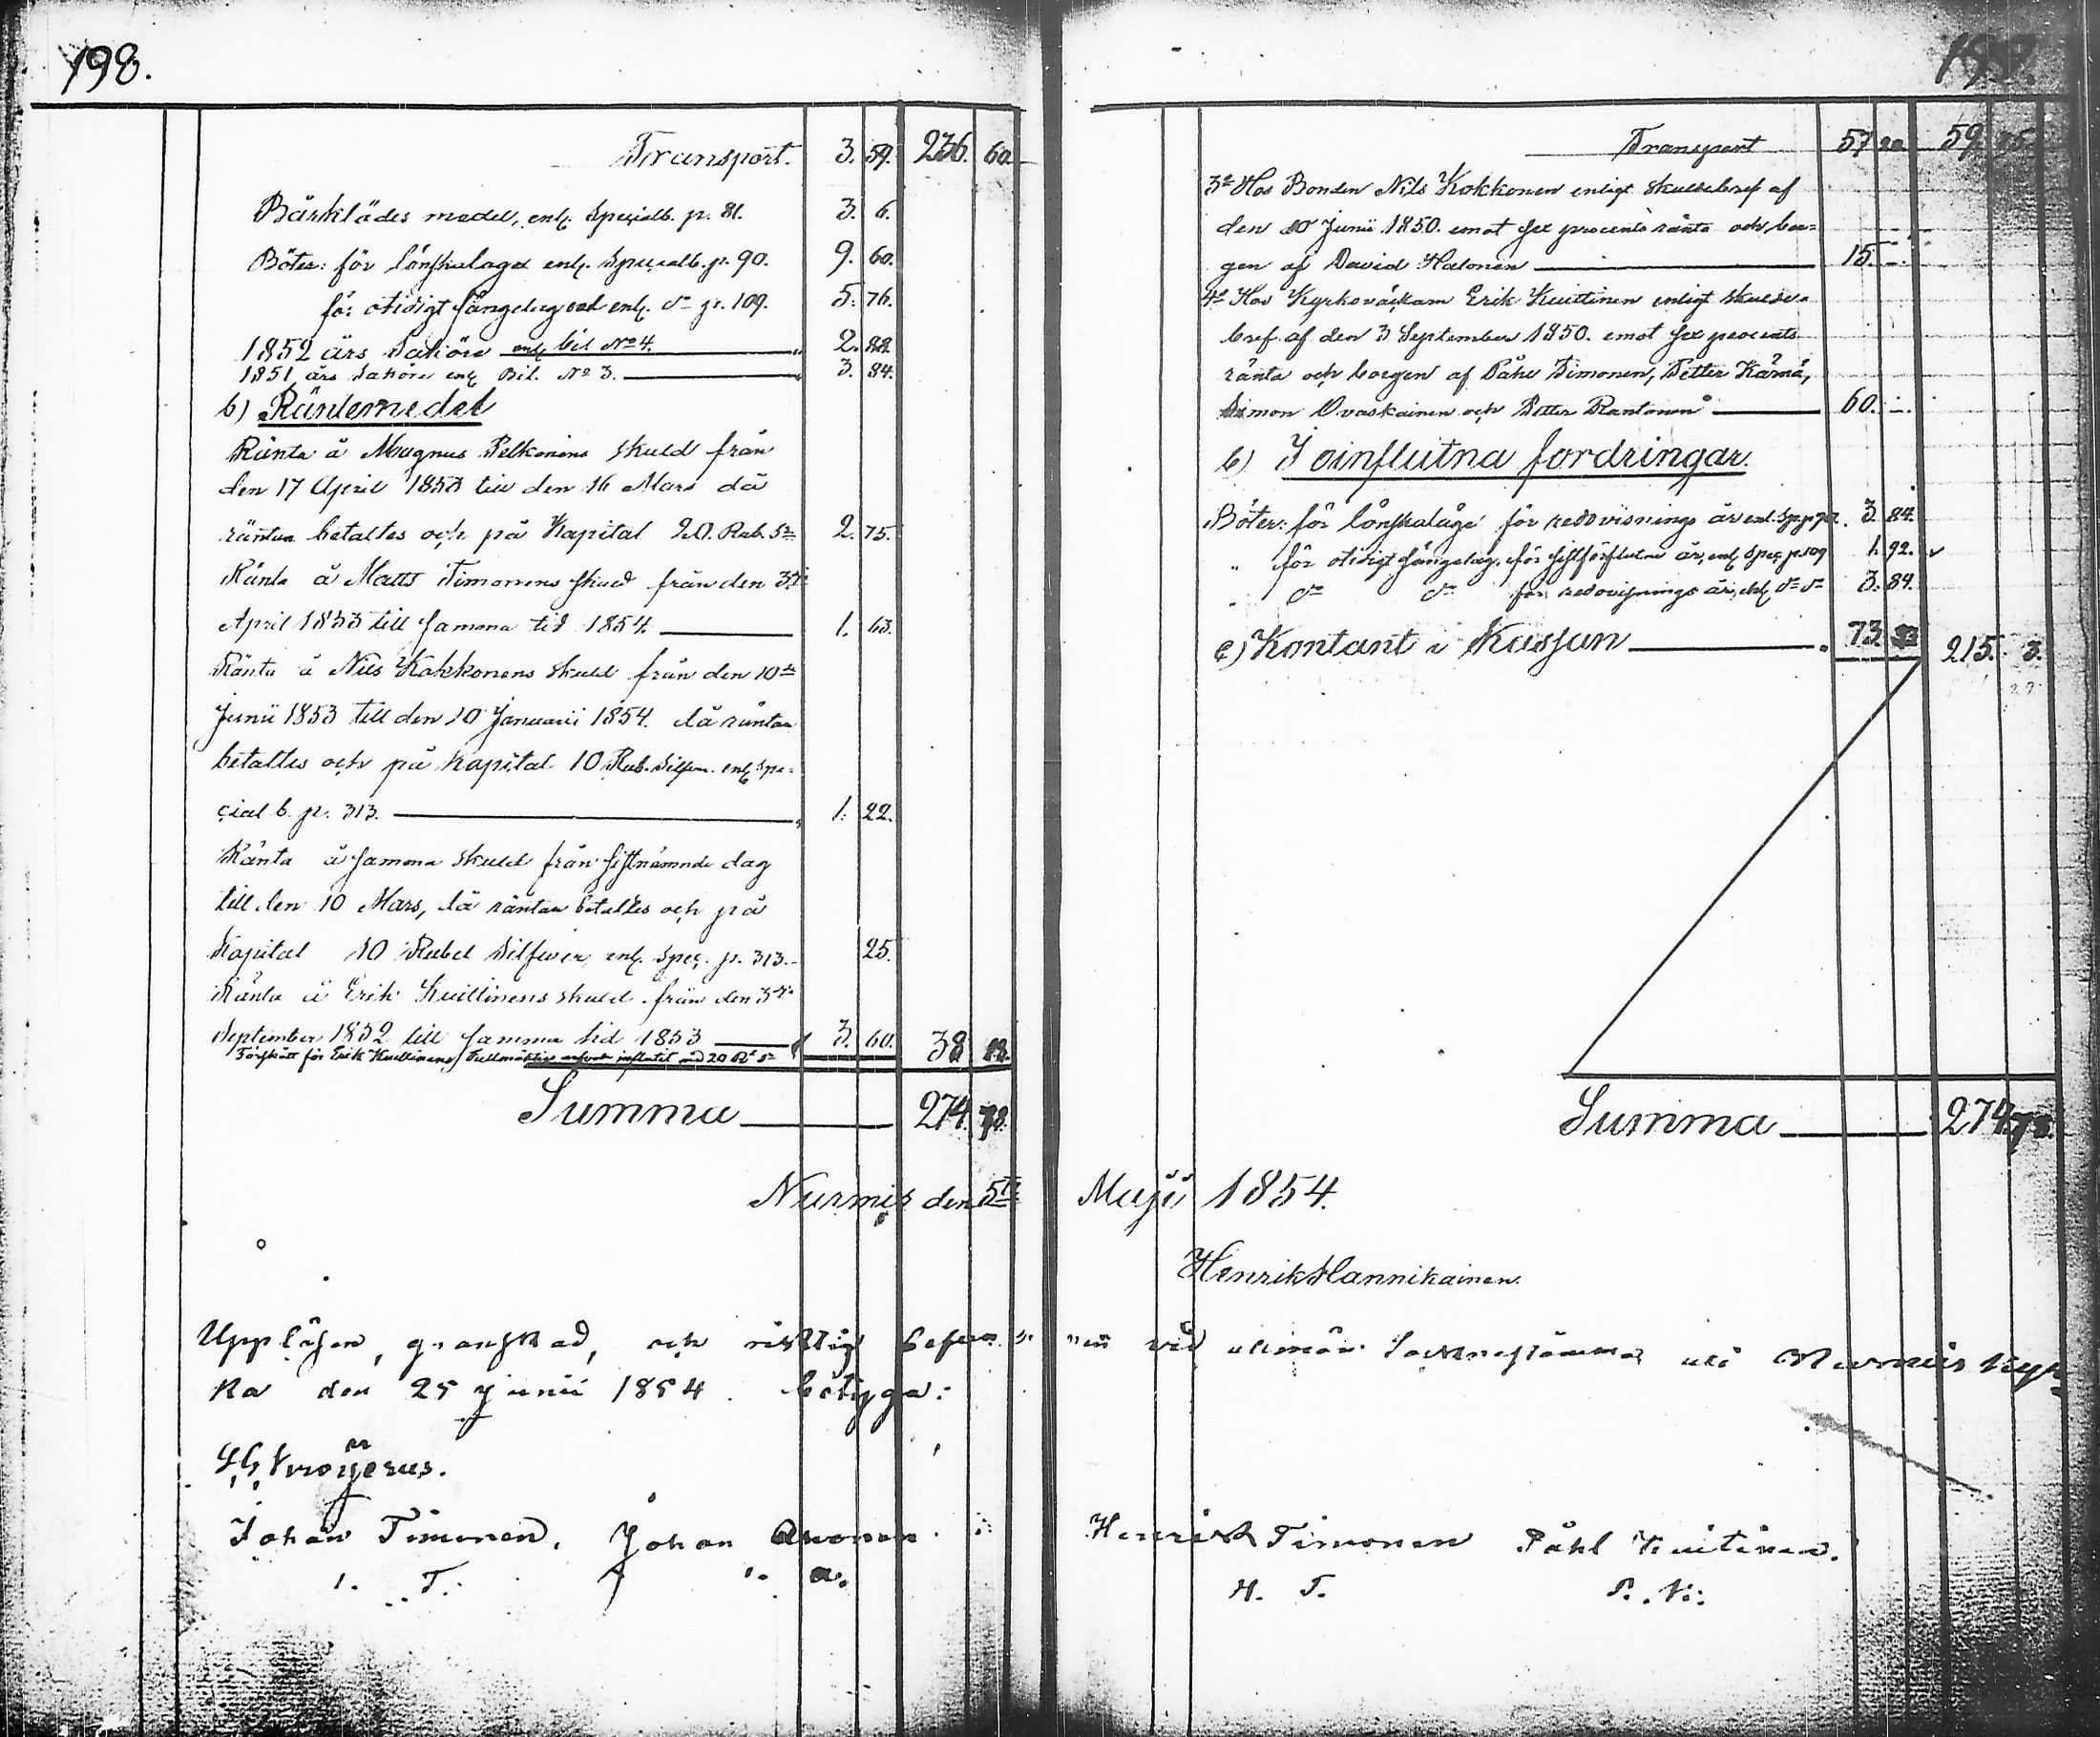 198.
Transport. 3. 59. 236. 60.
Bårklädes medel, enl. Specialb. p. 81. 3. 6.
Böter: för lönskalager enl. Specialb. p. 90. 9. 60.
för otidigt sängelag enl. dо p. 109. 5. 76.
1852 års Saköre enl. bil No 4. 2. 88.
1851 års Saköre enl. Bil. No 3. 3. 84.
b) Räntemedel
Ränta å Magnus Pelkonens skuld från
den 17 April 1853 till den 16 Mars då
räntan betaltes och på Kapital 20. Rub. Sr 2. 75.
Ränta å Matts Timonens skuld från den 3die
April 1853 till samma tid 1854. 1. 63.
Ränta å Nils Kokkonens skuld från den 10de
Junii 1853 till den 10 Januarii 1854. då räntan
betaltes och på Kapital 10 Rub. Silfver. enl. Spe-
cial b. p. 313. 1. 22.
Ränta å samma skuld från sistnämnde dag
till den 10 Mars, då räntan betaltes och på
Kapital 10 Rubel Silfver enl. Spec. p. 313. 25.
Ränta å Erik Kuittinens skuld från den 3die
September 1852 till samma tid 1853 3. 60. 38 18.
för Erik Kuittinens influtit med 20 Rl Sr
Summa 274. 78.
Nurmis den 5te
Upplåsen, granskad, och riktig befun-
ka den 25 Junii 1854. betyga:
Johan Timonen. Johan Anonen
I. T. J. A.
Transport 57 20 59 75
3o Hos Bonden Nils Kokkonen enligt skuldebref af
den 10 Junii 1850. emot sex procents ränta och bor-
gen af David Halonen 15. -.
4o Hos Kyrkoväckarn Erik Kuittinen enligt skulde-
bref af den 3 September 1850. emot sex procents
ränta och borgen af Påhl Timonen, Petter Kärnä,
Simon Ovaskainen och Petter Rantonen 60. -.
b) I oinflutna fordringar.
Böter: för lönskaläge för redovisnings år enl. Sp. p 90. 3. 84.
" för otidigt sängelag, för sistförflutne år, enl. Spec. p. 109 1. 92.
" do do för redovisnings år, enl. do do 3. 84.
c) Kontant i Kassan 73. 215. 3.
Summa 274. 78.
Maji 1854.
Henrik Hannikainen.
nen vid allmän Sockenstämma uti Nurmis Kyr-
Henrik Timonen Påhl Kuitinen.
H. T. P. K: